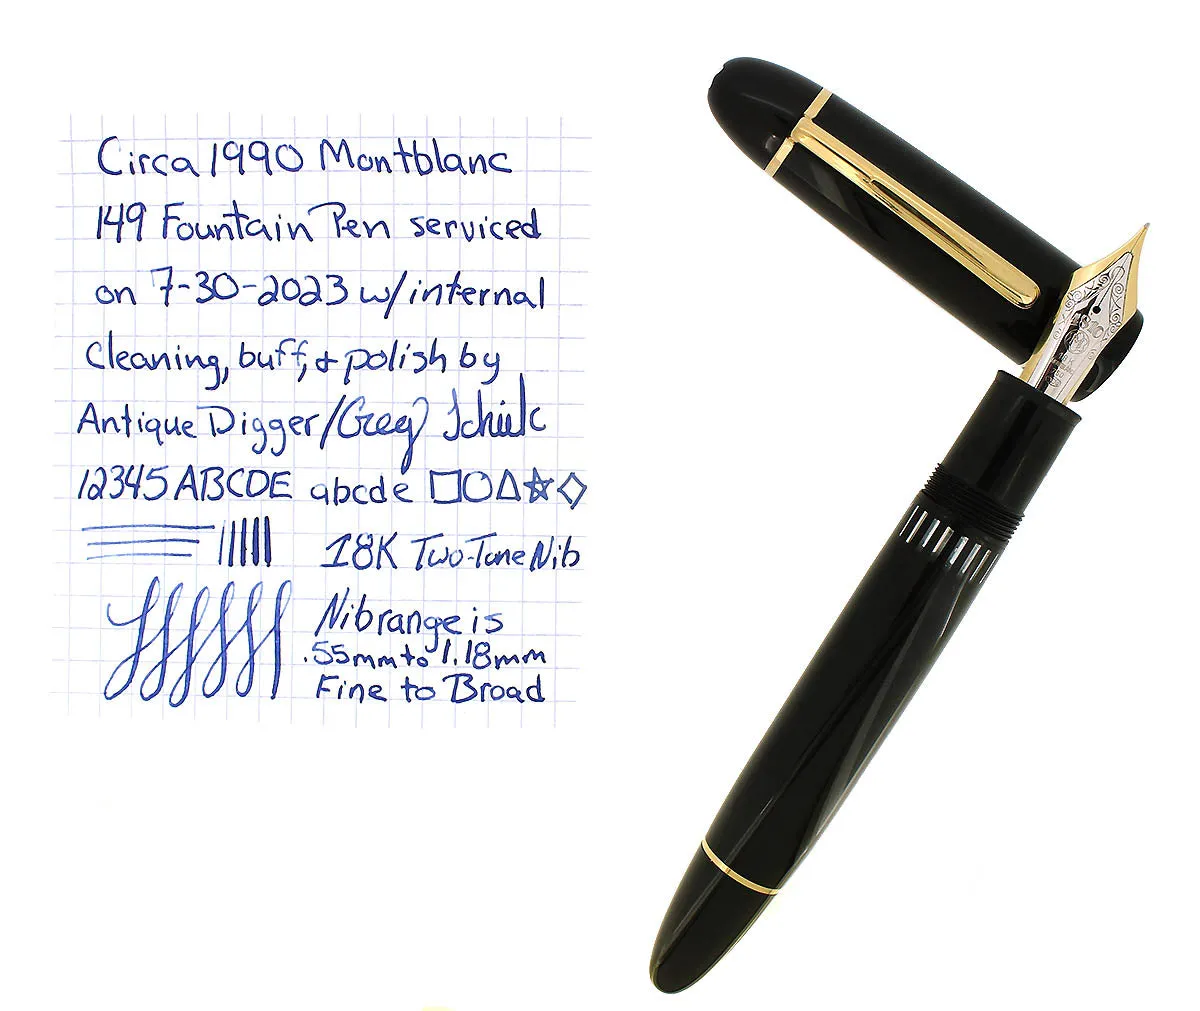 Circa 1990 Montblanc
149 Fountain Pen serviced
on 7-30-2023 w/internal
cleaning, buff, & polish by
Antique Digger/Greg
12345 ABCDE abcde
18K Two-Tone Nib
Nib range is
.55mm to 1.18mm
Fine to Broad